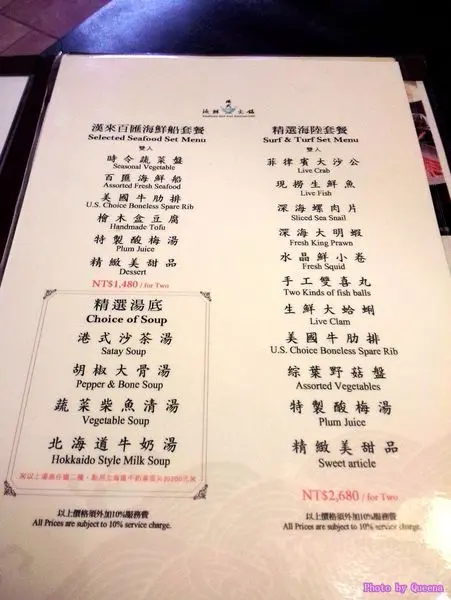 漢來百匯海鮮船套餐
Selected Seafood Set Menu
雙人
時令蔬菜盤
Seasonal Vegetable
百匯海鮮船
Assorted Fresh Seafood
美國牛肋排
U.S. Choice Boneless Spare Rib
檜木盒豆腐
Handmade Tofu
特製酸梅湯
Plum Juice
精緻美甜品
Dessert
NT$1,480 / for Two
精選湯底
Choice of Soup
港式沙茶湯
Satay Soup
胡椒大骨湯
Pepper & Bone Soup
蔬菜柴魚清湯
Vegetable Soup
北海道牛奶湯
Hokkaido Style Milk Soup
以上價格須外加10%服務費
All Prices are subject to 10% service charge.
精選海陸套餐
Surf & Turf Set Menu
雙人
菲律賓大沙公
Live Crab
現撈生鮮魚
Live Fish
深海螺肉片
Sliced Sea Snail
深海大明蝦
Fresh King Prawn
水晶鮮小卷
Fresh Squid
手工雙喜丸
Two Kinds of fish balls
生鮮大蛤蜊
Live Clam
美國牛肋排
U.S. Choice Boneless Spare Rib
綜葉野菇盤
Assorted Vegetables
特製酸梅湯
Plum Juice
精緻美甜品
Sweet article
NT$2,680 / for Two
以上價格須外加10%服務費
All Prices are subject to 10% service charge.
Photo by Queena